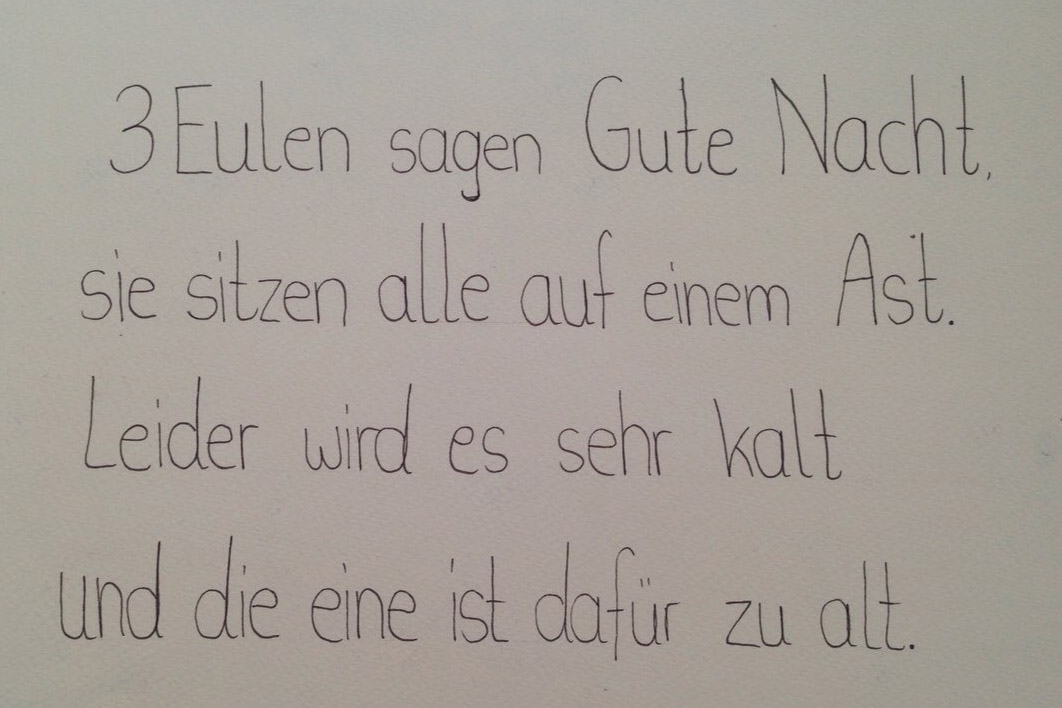 3 Eulen sagen Gute Nacht,
sie sitzen alle auf einem Ast.
Leider wird es sehr kalt
und die eine ist dafür zu alt.